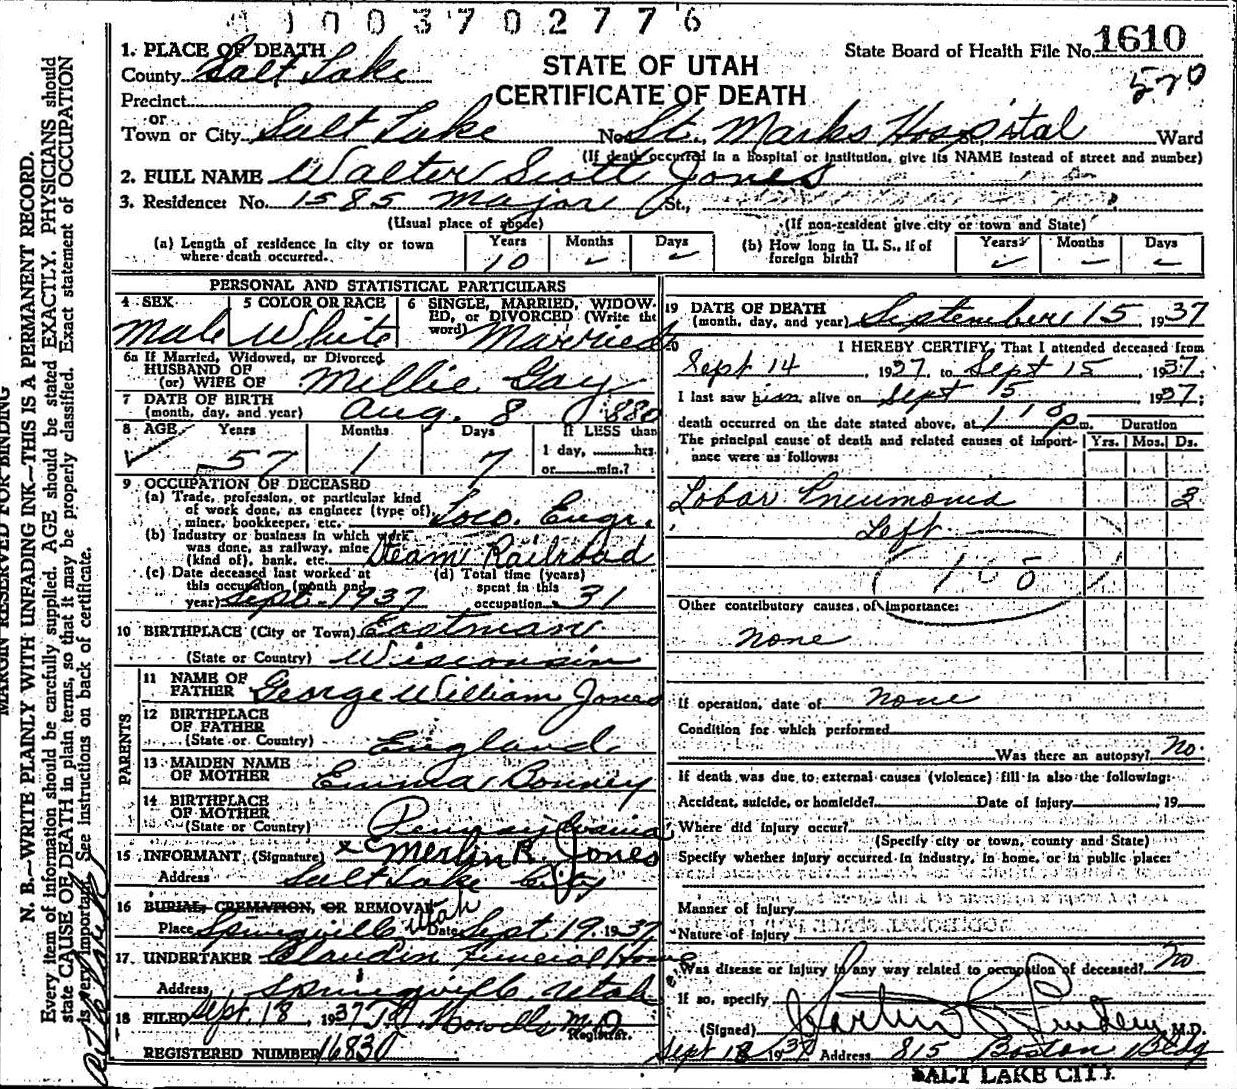 1003702776
1. PLACE OF DEATH
County Salt Lake
STATE OF UTAH
CERTIFICATE OF DEATH
State Board of Health File No. 1610
570
Precinct
or
Town or City Salt Lake No. St. Marks Hospital St., Ward
(If death occurred in a hospital or institution, give its NAME instead of street and number)
2. FULL NAME Walter Scott Jones
3. Residence: No. 1585 Major St.,
(Usual place of abode) (If non-resident give city or town and State)
(a) Length of residence in city or town where death occurred. Years 10 Months - Days -
(b) How long in U. S., if of foreign birth? Years Months - Days -
PERSONAL AND STATISTICAL PARTICULARS
4 SEX Male
5 COLOR OR RACE White
6 SINGLE, MARRIED, WIDOWED, or DIVORCED (Write the word) Married
6a If Married, Widowed, or Divorced
HUSBAND OF
(or) WIFE OF Millie Gay
7 DATE OF BIRTH
(month, day, and year) Aug. 8 1880
8 AGE Years 57 Months 1 Days 7 If LESS than 1 day, hrs. or min.?
9 OCCUPATION OF DECEASED
(a) Trade, profession, or particular kind
of work done, as engineer (type of),
miner, bookkeeper, etc. Loco. Engr.
(b) Industry or business in which work
was done, as railway, mine
(kind of), bank, etc. Steam Railroad
(c) Date deceased last worked at
this occupation (month and
year) Sept. 1937
(d) Total time (years)
spent in this
occupation 31
10 BIRTHPLACE (City or Town) Eastman
(State or Country) Wisconsin
PARENTS
11 NAME OF
FATHER George William Jones
12 BIRTHPLACE
OF FATHER
(State or Country) England
13 MAIDEN NAME
OF MOTHER Emma Bonney
14 BIRTHPLACE
OF MOTHER
(State or Country) Pennsylvania
15 INFORMANT (Signature) x Merlin R. Jones
Address Salt Lake City
16 BURIAL, CREMATION, OR REMOVAL
Place Springville Utah Date Sept. 19, 1937
17. UNDERTAKER Claudin Funeral Home
Address Springville, Utah
18 FILED Sept. 18, 1937 Howells M.D.
Registrar.
REGISTERED NUMBER 16830
19 DATE OF DEATH
(month, day, and year) September 15, 1937
20 I HEREBY CERTIFY, That I attended deceased from
Sept 14, 1937, to Sept 15, 1937.
I last saw him alive on Sept 15, 1937;
death occurred on the date stated above, at P.m.
The principal cause of death and related causes of importance were as follows:
Duration
Yrs. Mos. Ds.
Lobar Pneumonia 3
Left
108
Other contributory causes of importance:
none
If operation, date of none
Condition for which performed
Was there an autopsy? No.
If death was due to external causes (violence) fill in also the following:
Accident, suicide, or homicide? Date of injury , 19
Where did injury occur?
(Specify city or town, county and State)
Specify whether injury occurred in industry, in home, or in public place:
Manner of injury
Nature of injury
Was disease or injury in any way related to occupation of deceased? No
If so, specify
(Signed) M.D.
Sept 18 1937 Address 815 Boston Bldg
SALT LAKE CITY
MARGIN RESERVED FOR BINDING
N. B.—WRITE PLAINLY WITH UNFADING INK—THIS IS A PERMANENT RECORD.
Every item of information should be carefully supplied. AGE should be stated EXACTLY. PHYSICIANS should
state CAUSE OF DEATH in plain terms, so that it may be properly classified. Exact statement of OCCUPATION
is very important. See instructions on back of certificate.